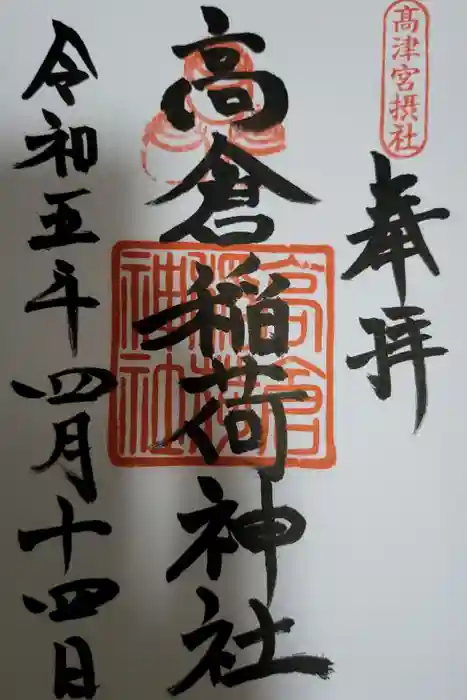 髙津宮摂社
奉拝
高倉稲荷神社
高倉稲荷神社
令和五年四月十四日